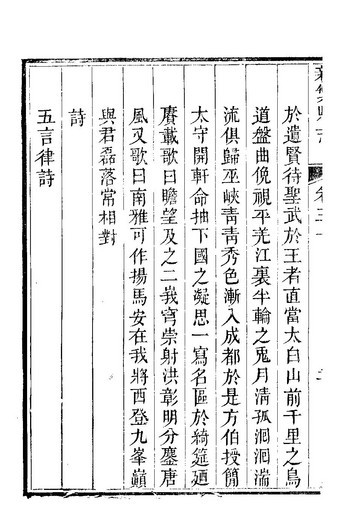 於遺賢待聖武於王者直當太白山前千里之鳥
道盤曲俛視平羌江裏半輪之兎月清孤洄洄湍
流俱歸巫峽靑靑秀色漸入成都於是方伯授簡
太守開軒命抽下國之凝思一寫名區於綺筵廼
賡載歌曰瞻望及之二峩穹崇射洪彰明分鏖唐
風又歌曰南雅可作揚馬安在我將西登九峯巔
與君磊落常相對
詩
五言律詩